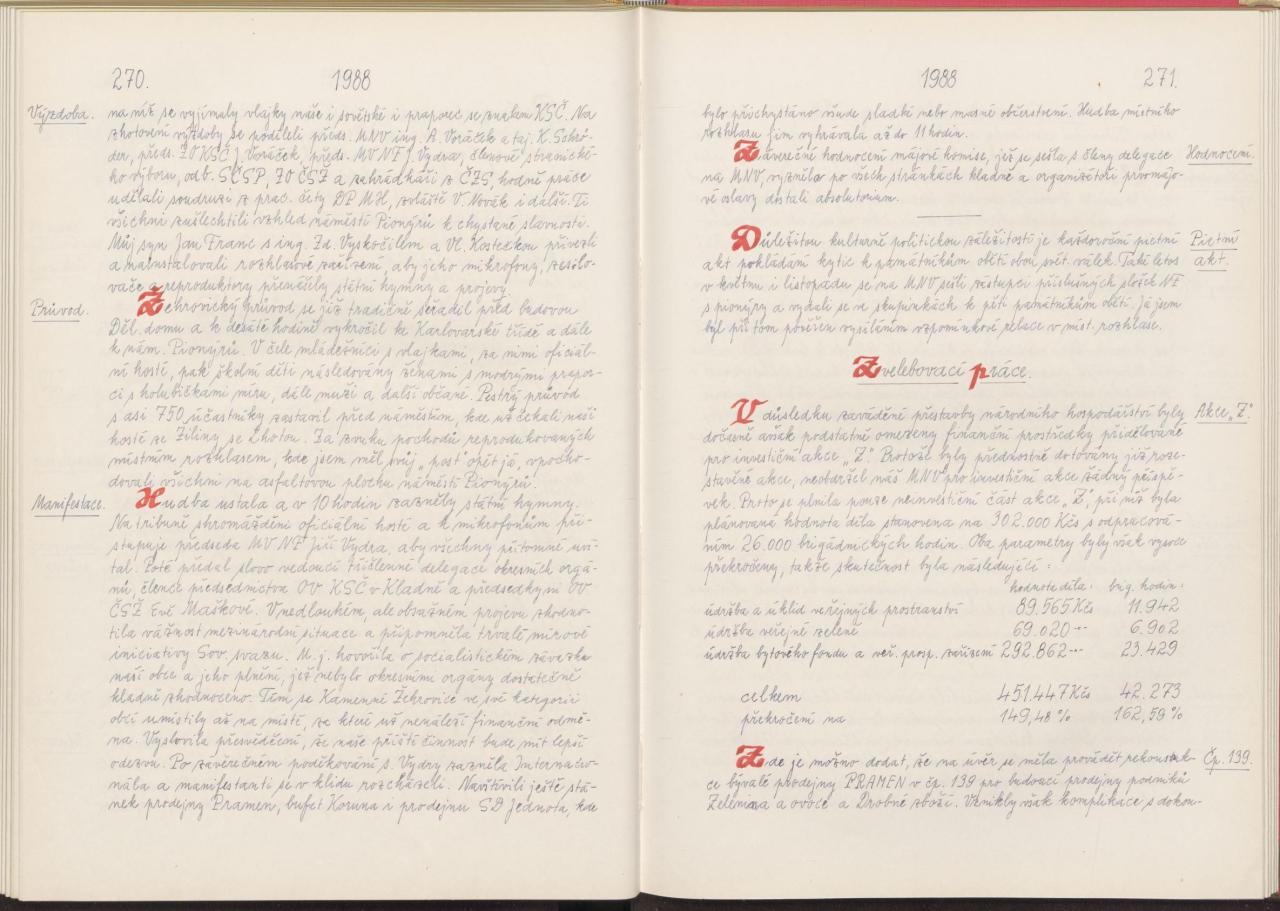 270.
1988
Výzdoba.
na níž se vyjímaly vlajky naše i sovětské i praporec se znakem KSČ. Na
zhotovení výzdoby se podíleli předs. MNV ing. A. Voráček a taj. K. Schrö-
der, předs. ZO KSČ J. Voráček, předs. MV NF J. Vydra, členové stranické-
ho výboru, odb. SČSP, ZO ČSŽ a zahrádkáři z ČZS, hodně práce
udělali soudruzi z prac. čety DP MH, zvláště V. Novák i další. Ti
všichni zušlechtili vzhled náměstí Pionýrů k chystané slavnosti.
Můj syn Jan Franc s ing. Zd. Vyskočilem a Vl. Kosteckou přivezli
a nainstalovali rozhlasové zařízení, aby jeho mikrofony, zesilo-
vače a reproduktory přenášely státní hymny a projevy.
Průvod.
Žehrovický průvod se již tradičně seřadil před budovou
Děl. domu a k desáté hodině vykročil ke Karlovarské třídě a dále
k nám. Pionýrů. V čele mládežníci s vlajkami, za nimi oficiál-
ní hosté, pak školní děti následovány ženami s modrými prapor-
ci s holubičkami míru, dále muži a další občané. Pestrý průvod
s asi 750 účastníky zastavil před náměstím, kde už čekali naši
hosté ze Žiliny se Lhotou. Za zvuku pochodů reprodukovaných
místním rozhlasem, kde jsem měl svůj „post" opět já, vpocho-
dovali všichni na asfaltovou plochu náměstí Pionýrů.
Manifestace.
Hudba ustala a v 10 hodin zazněly státní hymny.
Na tribuně shromáždění oficiální hosté a k mikrofonům při-
stupuje předseda MV NF Jiří Vydra, aby všechny přítomné uví-
tal. Poté předal slovo vedoucí tříčlenné delegace okresních orgá-
nů, člence předsednictva OV KSČ v Kladně a předsedkyni OV
ČSŽ Evě Maškové. V nedlouhém, ale obsažném projevu zhodno-
tila vážnost mezinárodní situace a připomněla trvalé mírové
iniciativy Sov. svazu. M. j. hovořila o socialistickém závazku
naší obce a jeho plnění, jež nebylo okresními orgány dostatečně
kladně zhodnoceno. Tím se Kamenné Žehrovice ve své kategorii
obcí umístily až na místě, za které už nenáleží finanční odmě-
na. Vyslovila přesvědčení, že naše příští činnost bude mít lepší
odezvu. Po závěrečném poděkování s. Vydry zazněla Internacio-
nála a manifestanti se v klidu rozcházeli. Navštívili ještě stá-
nek prodejny Pramen, bufet Koruna i prodejnu SD Jednota, kde
1988
271.
bylo přichystáno všude sladké nebo masné občerstvení. Hudba místního
rozhlasu jim vyhrávala až do 11 hodin.
Hodnocení.
Závěrečné hodnocení májové komise, jež se sešla s členy delegace
na MNV, vyznělo po všech stránkách kladně a organizátoři prvomájo-
vé oslavy dostali absolutorium.
Pietní
akt.
Důležitou kulturně politickou záležitostí je každoroční pietní
akt pokládání kytic k památníkům obětí obou svět. válek. Také letos
v květnu i listopadu se na MNV sešli zástupci příslušných složek NF
s pionýry a vydali se ve skupinkách k pěti památníkům obětí. Já jsem
byl při tom pověřen vysíláním vzpomínkové relace v míst. rozhlase.
Zvelebovací práce.
Akce „Z".
V důsledku zavádění přestavby národního hospodářství byly
dočasně avšak podstatně omezeny finanční prostředky přidělované
pro investiční akce „Z". Protože byly přednostně dotovány již roze-
stavěné akce, neobdržel náš MNV pro investiční akce žádný příspě-
vek. Proto se plnila pouze neinvestiční část akce „Z", při níž byla
plánovaná hodnota díla stanovena na 302.000 Kčs s odpracová-
ním 26.000 brigádnických hodin. Oba parametry byly však vysoce
překročeny, takže skutečnost byla následující:
hodnota díla: brig. hodin:
údržba a úklid veřejných prostranství 89.565 Kčs 11.942
údržba veřejné zeleně 69.020 -"- 6.902
údržba bytového fondu a veř. prosp. zařízení 292.862 -"- 23.429
celkem 451.447 Kčs 42.273
překročení na 149,48 % 162,59 %
Čp. 139.
Zde je možno dodat, že na úvěr se měla provádět rekonstruk-
ce bývalé prodejny PRAMEN v čp. 139 pro budoucí prodejny podniků
Zelenina a ovoce a Drobné zboží. Vznikly však komplikace s dokon-